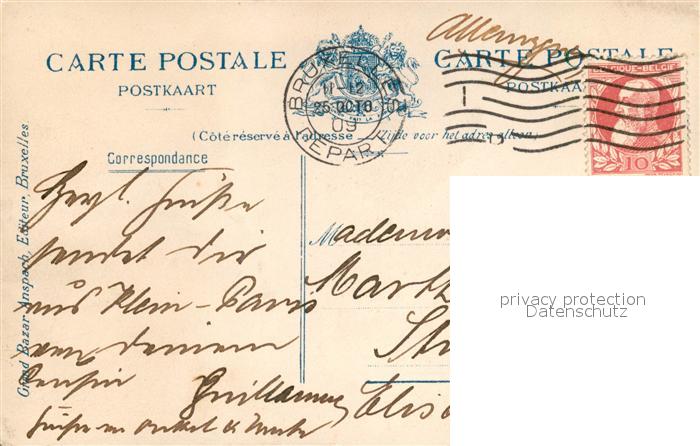 Allemagne
CARTE POSTALE
CARTE POSTALE
POSTKAART
POSTKAA
BRUXELLES
11-12
25 OCT
09
DEPART
BELGIQUE-BELGIË
10
(Côté réservé à l'adresse
Zijde voor het adres alleen)
Correspondance
Grand Bazar Anspach, Editeur, Bruxelles.
Herzl. Grüße
sendet dir
aus Klein-Paris
von deinem
Cousin Guillaume
Grüße an Onkel u. Tante
Mademo
Marth
Elisa
privacy protection
Datenschutz